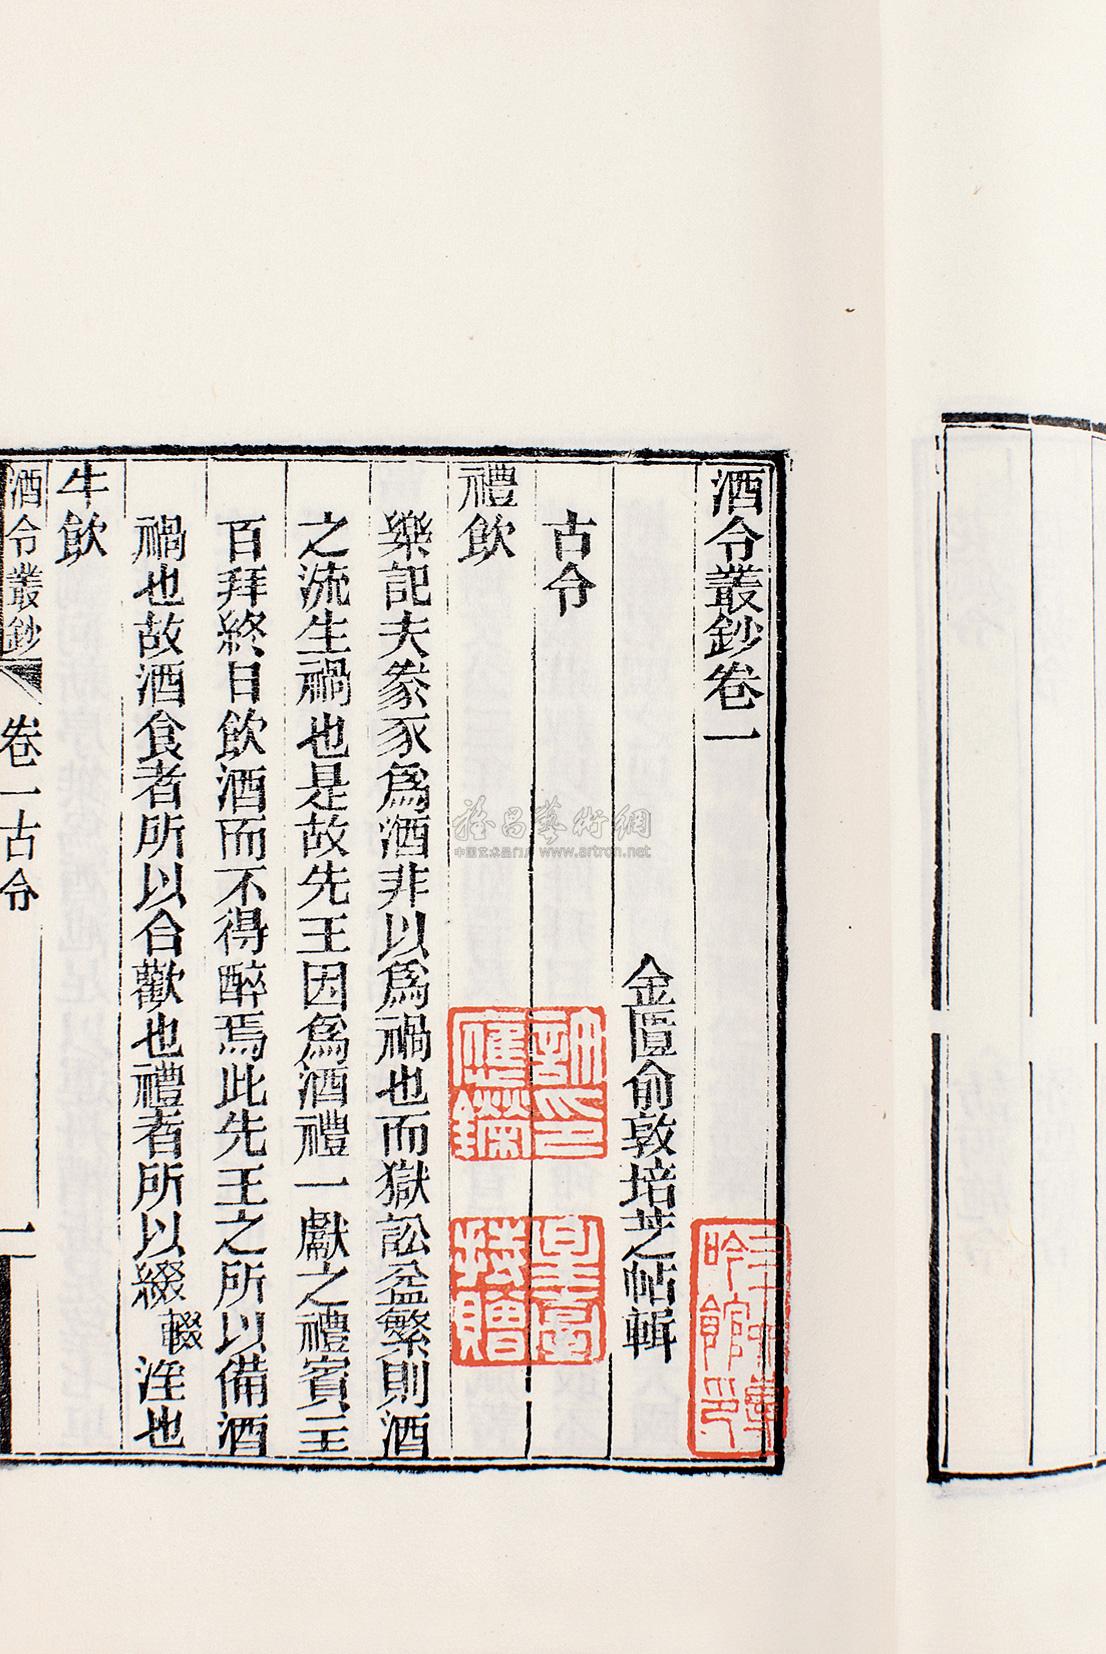 酒令叢鈔卷一
金匱俞敦培芝帖輯
古令
禮飲
樂記夫豢豕爲酒非以爲禍也而獄訟益繁則酒
之流生禍也是故先王因爲酒禮一獻之禮賓主
百拜終日飲酒而不得醉焉此先王之所以備酒
禍也故酒食者所以合歡也禮者所以綴輟淫也
牛飲
酒令叢鈔
卷一古令
一
雅昌藝術網
中国艺术品门户 www.artron.net